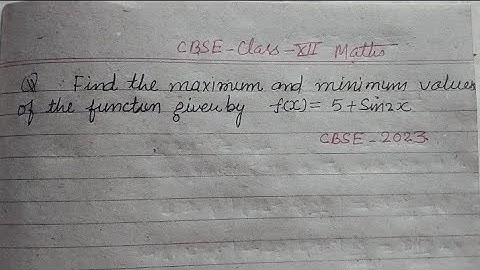 CBSE - Class - XII Maths
Q Find the maximum and minimum values
of the function given by f(x) = 5 + Sin2x
CBSE - 2023